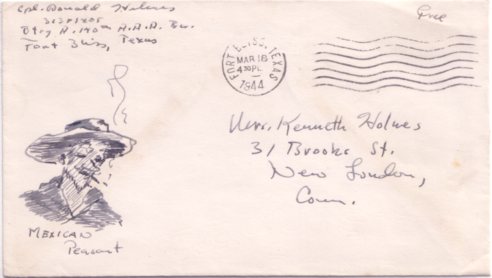 Cpl. Donald Holmes
Btry A. 140th A.A.A. Bn.
Fort Bliss, Texas
Free
FORT BLISS, TEXAS
MAR 18
4 30 PM
1944
Mrs. Kenneth Holmes
31 Brooks St.
New London,
Conn.
MEXICAN
Peasant